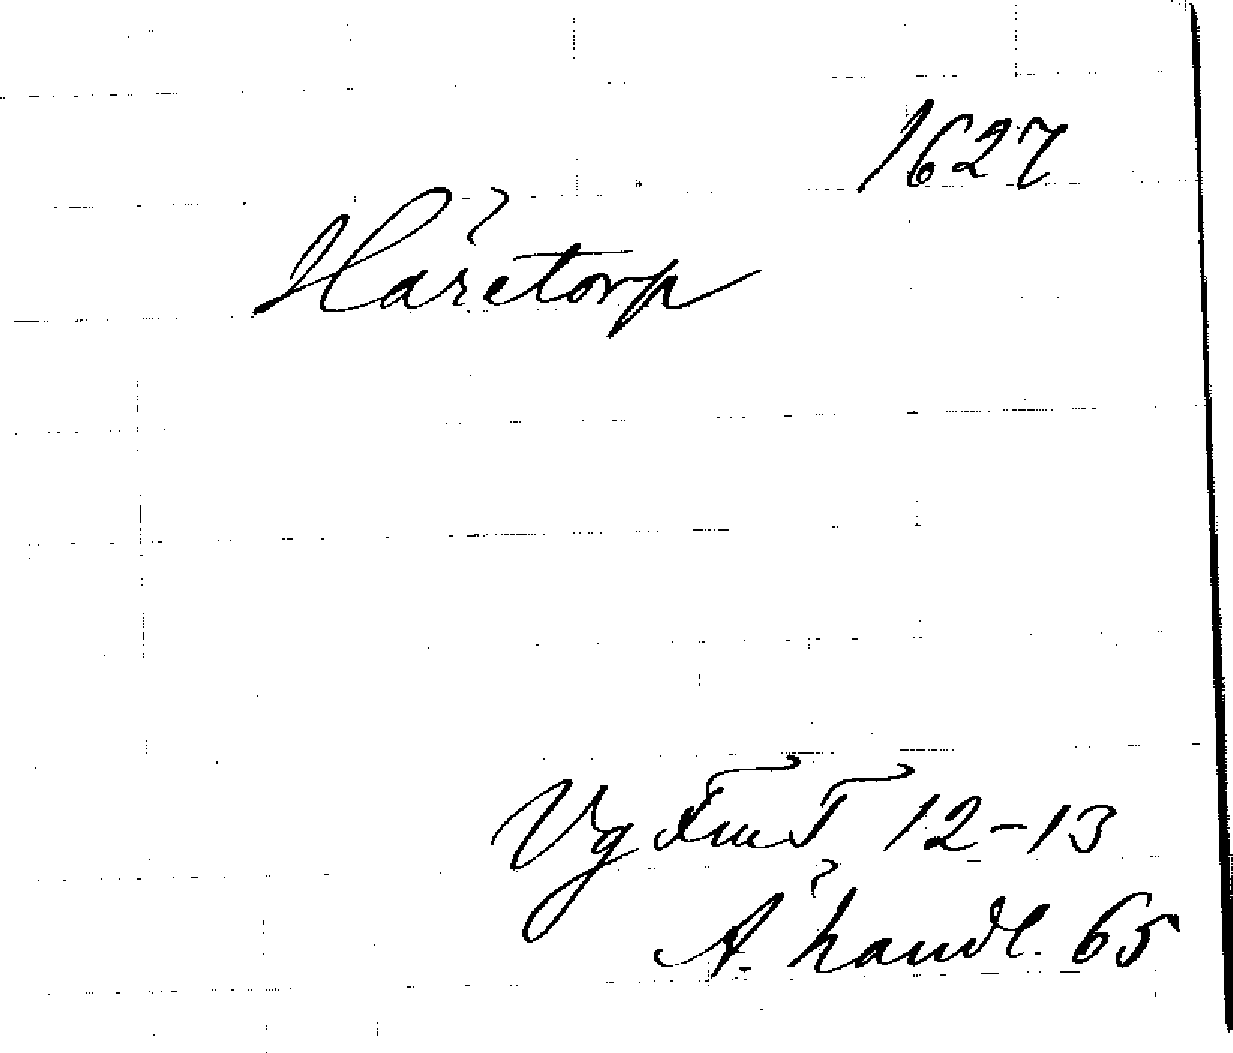 1627
Häretorp
Vg FmT 12-13
Ä. handl. 65